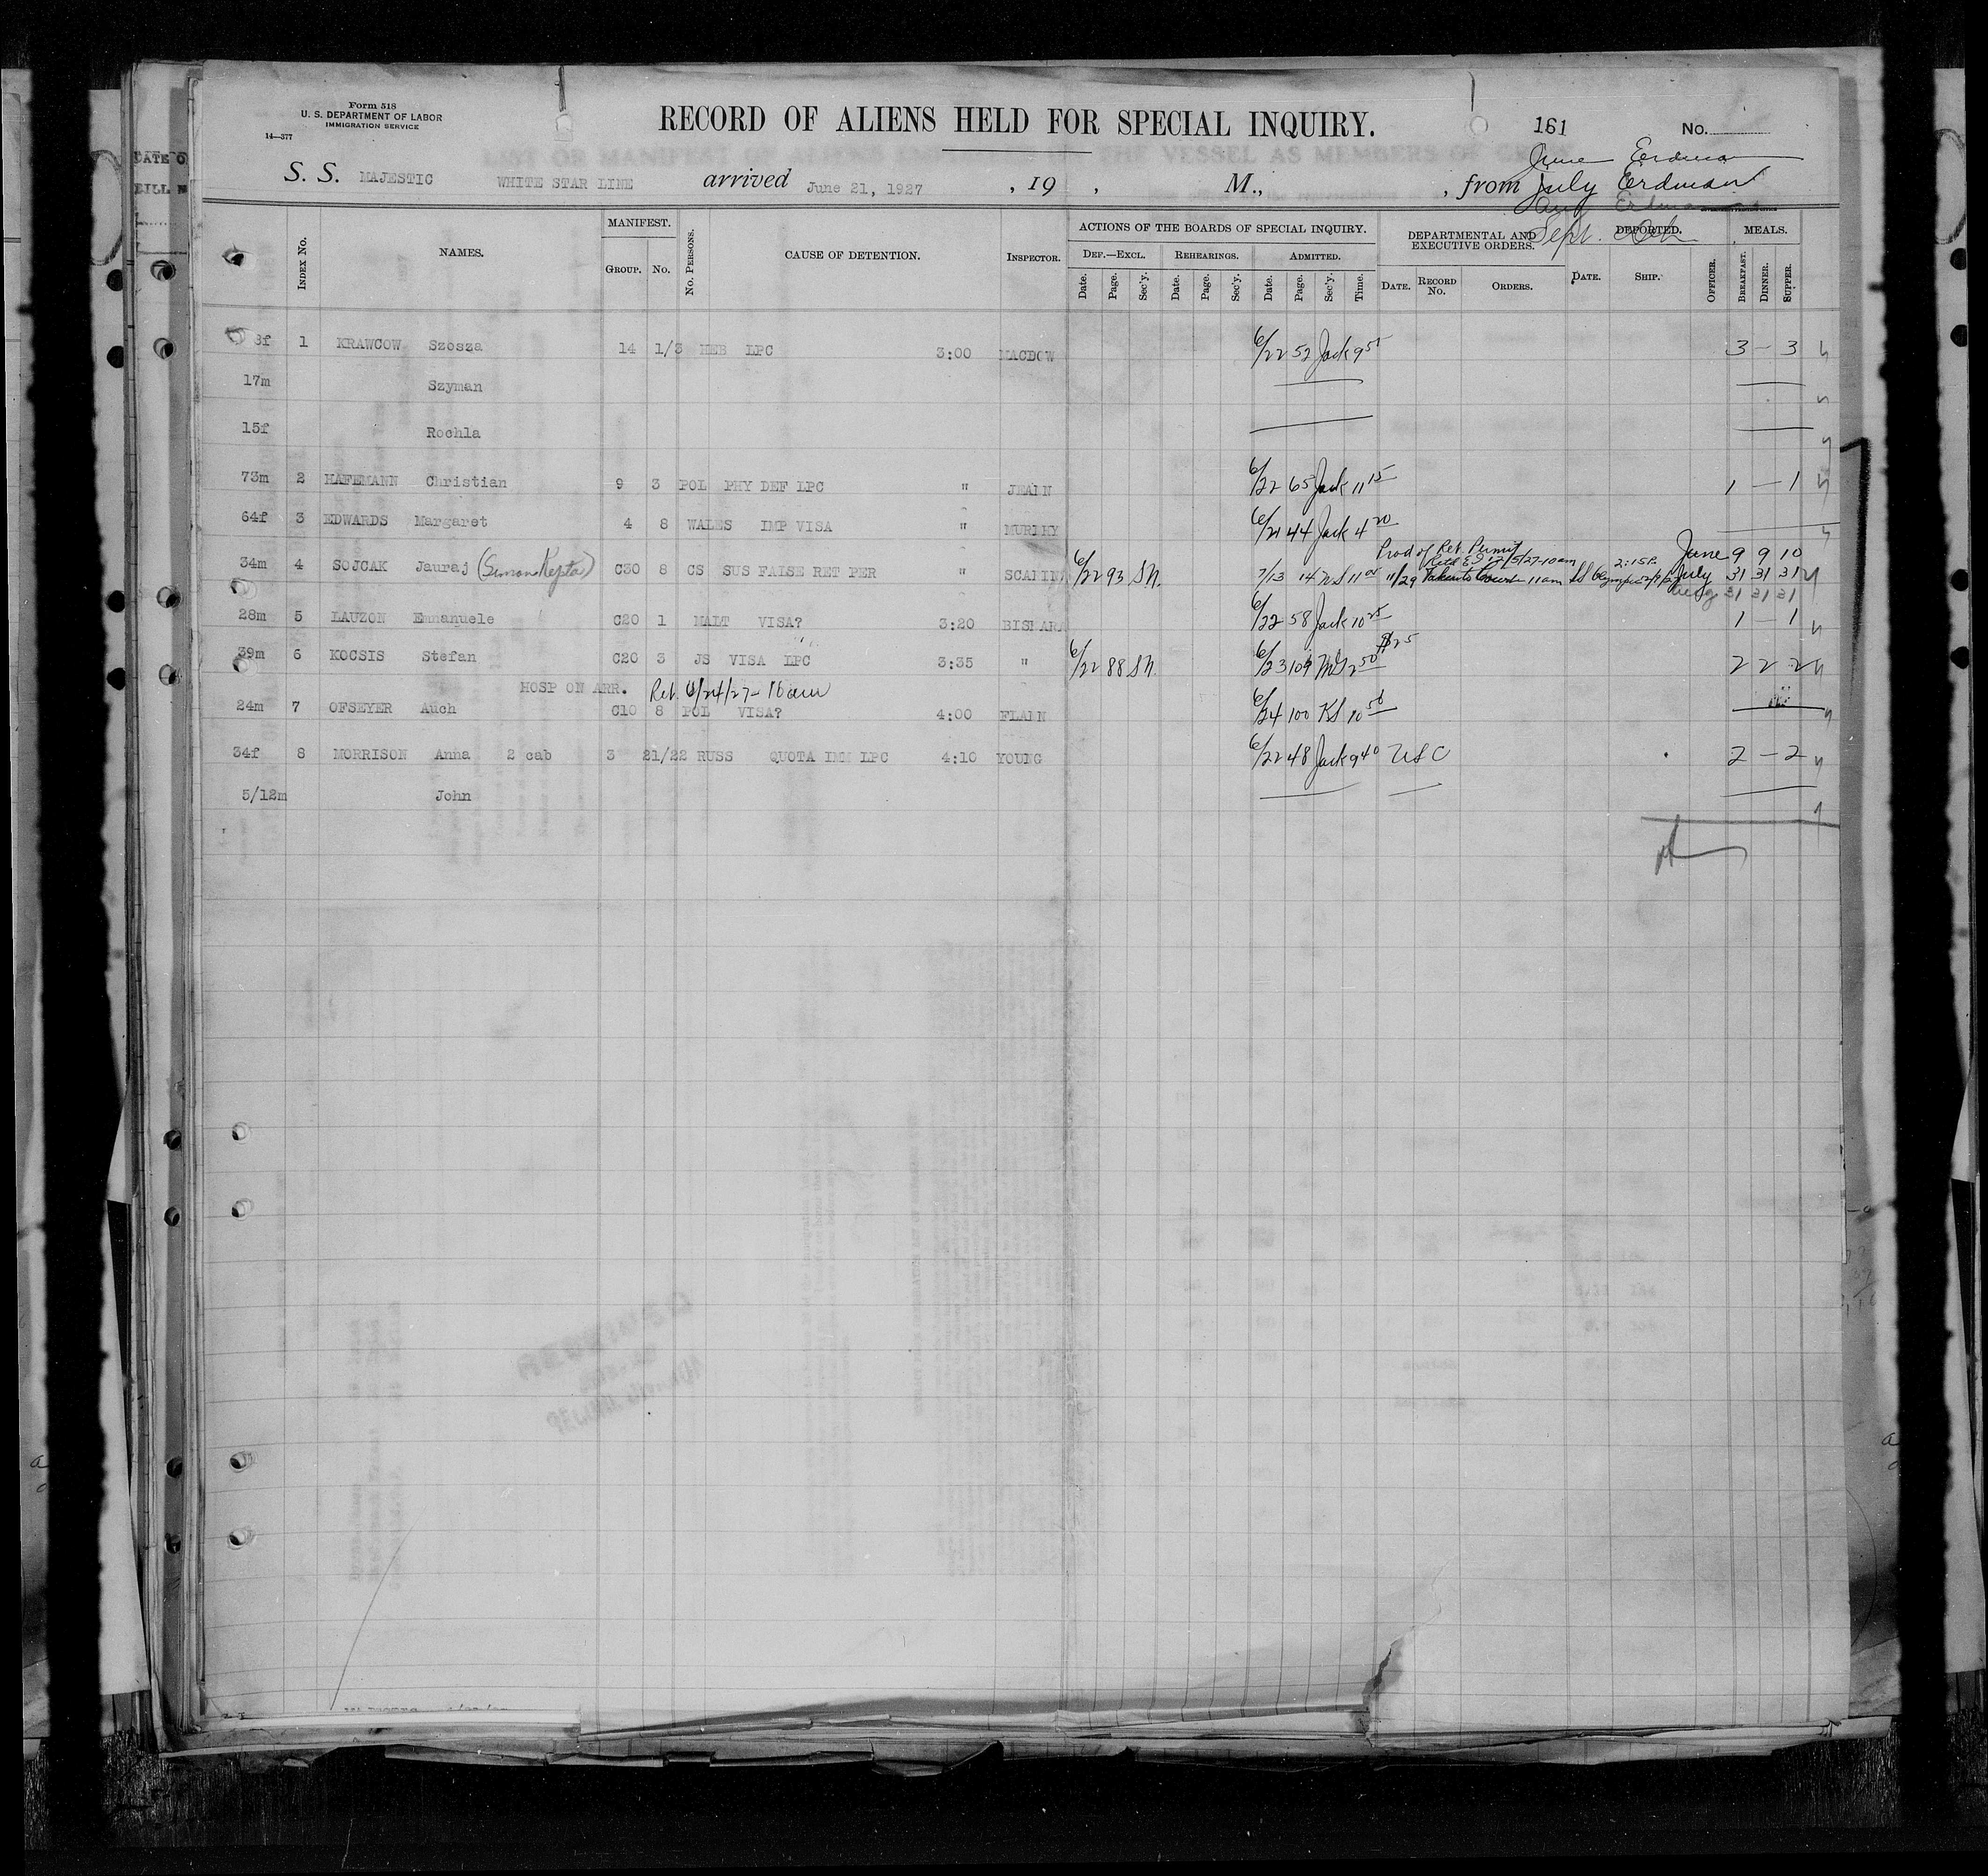 Form 518
U. S. DEPARTMENT OF LABOR
IMMIGRATION SERVICE
14—377
RECORD OF ALIENS HELD FOR SPECIAL INQUIRY.
161 No.
June Erdman
S. S. MAJESTIC WHITE STAR LINE arrived June 21, 1927, 19 , M., , from July Erdman
Aug Erdman
Sept.
DATE O
BILL N
INDEX No. NAMES. MANIFEST. GROUP. No. No. PERSONS. CAUSE OF DETENTION. INSPECTOR.
ACTIONS OF THE BOARDS OF SPECIAL INQUIRY.
DEF.—EXCL. REHEARINGS. ADMITTED.
Date. Page. Sec'y. Date. Page. Sec'y. Date. Page. Sec'y. Time.
DEPARTMENTAL AND EXECUTIVE ORDERS. DATE. RECORD No. ORDERS.
DEPORTED. DATE. SHIP. OFFICER.
MEALS. BREAKFAST. DINNER. SUPPER.
8f 1 KRAWCOW Szosza 14 1/3 HEB LPC 3:00 MACDOW 6/22 52 Jack 9 55 3 — 3
17m Szyman
15f Rochla
73m 2 HAFEMANN Christian 9 3 POL PHY DEF LPC " JEAIN 6/22 65 Jack 11 15 1 — 1
64f 3 EDWARDS Margaret 4 8 WALES IMP VISA " MURPHY 6/21 44 Jack 4 20
Prod of Ret. Permit
Retd E I 12/5/27-10am 2:15P. June 9 9 10
34m 4 SOJCAK Jauraj (Simon Kepta) C30 8 CS SUS FALSE RET PER " SCANIN 6/22 93 SN. 7/13 14 MS 11 05 11/29 Taken to Court 11am Olympic July 31 31 31
Aug 31 31 31
28m 5 LAUZON Emmanuele C20 1 MALT VISA? 3:20 BISHARA 6/22 58 Jack 10 25 1 — 1
39m 6 KOCSIS Stefan C20 3 JS VISA LPC 3:35 " 6/22 88 SN. 6/23 109 MS 2 50 $25 2 2 2
HOSP ON ARR. Ret. 6/24/27- 10 am
24m 7 OFSEYER Auch C10 8 POL VISA? 4:00 FLAIN 6/24 100 KS 10 50
34f 8 MORRISON Anna 2 cab 3 21/22 RUSS QUOTA IMM LPC 4:10 YOUNG 6/22 48 Jack 9 40 USC 2 — 2
5/12m John